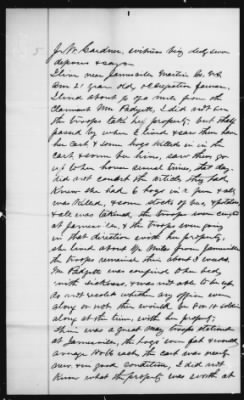 J. W. Gardner, witness being duly sworn
deposes & says
I live near Jamesville Martin Co. N.C.
am 21 years old, occupation farmer,
I lived about ½ of a mile from the
Claimant Mrs Padgett, I did not see
the troops take her property, but they
passed by where I lived & saw them have
her cart & some hogs killed in in the
cart & some by him, saw them go
up to her home several times, that day.
did not control the articles they had.
Know she had 6 hogs in a pen & all
was killed, & some stocks of bees, & potatoes
& all was taken, the troops were camped
at Jamesville, & the troops were going
in that direction with her property,
she lived about 2½ miles from Jamesville
the troops remained there about 3 weeks.
Mrs Padgett was confined to her bed
with sickness, & was not able to be up.
do not recollect whether any officer were
along or not, there would be 10 or a dozen
along at the time, with her property;
there was a great many troops stationed
at Jamesville, the hogs were fat & would
average 140 lb each, the cart was nearly
new & in good condition, I did not
know what the property was worth at